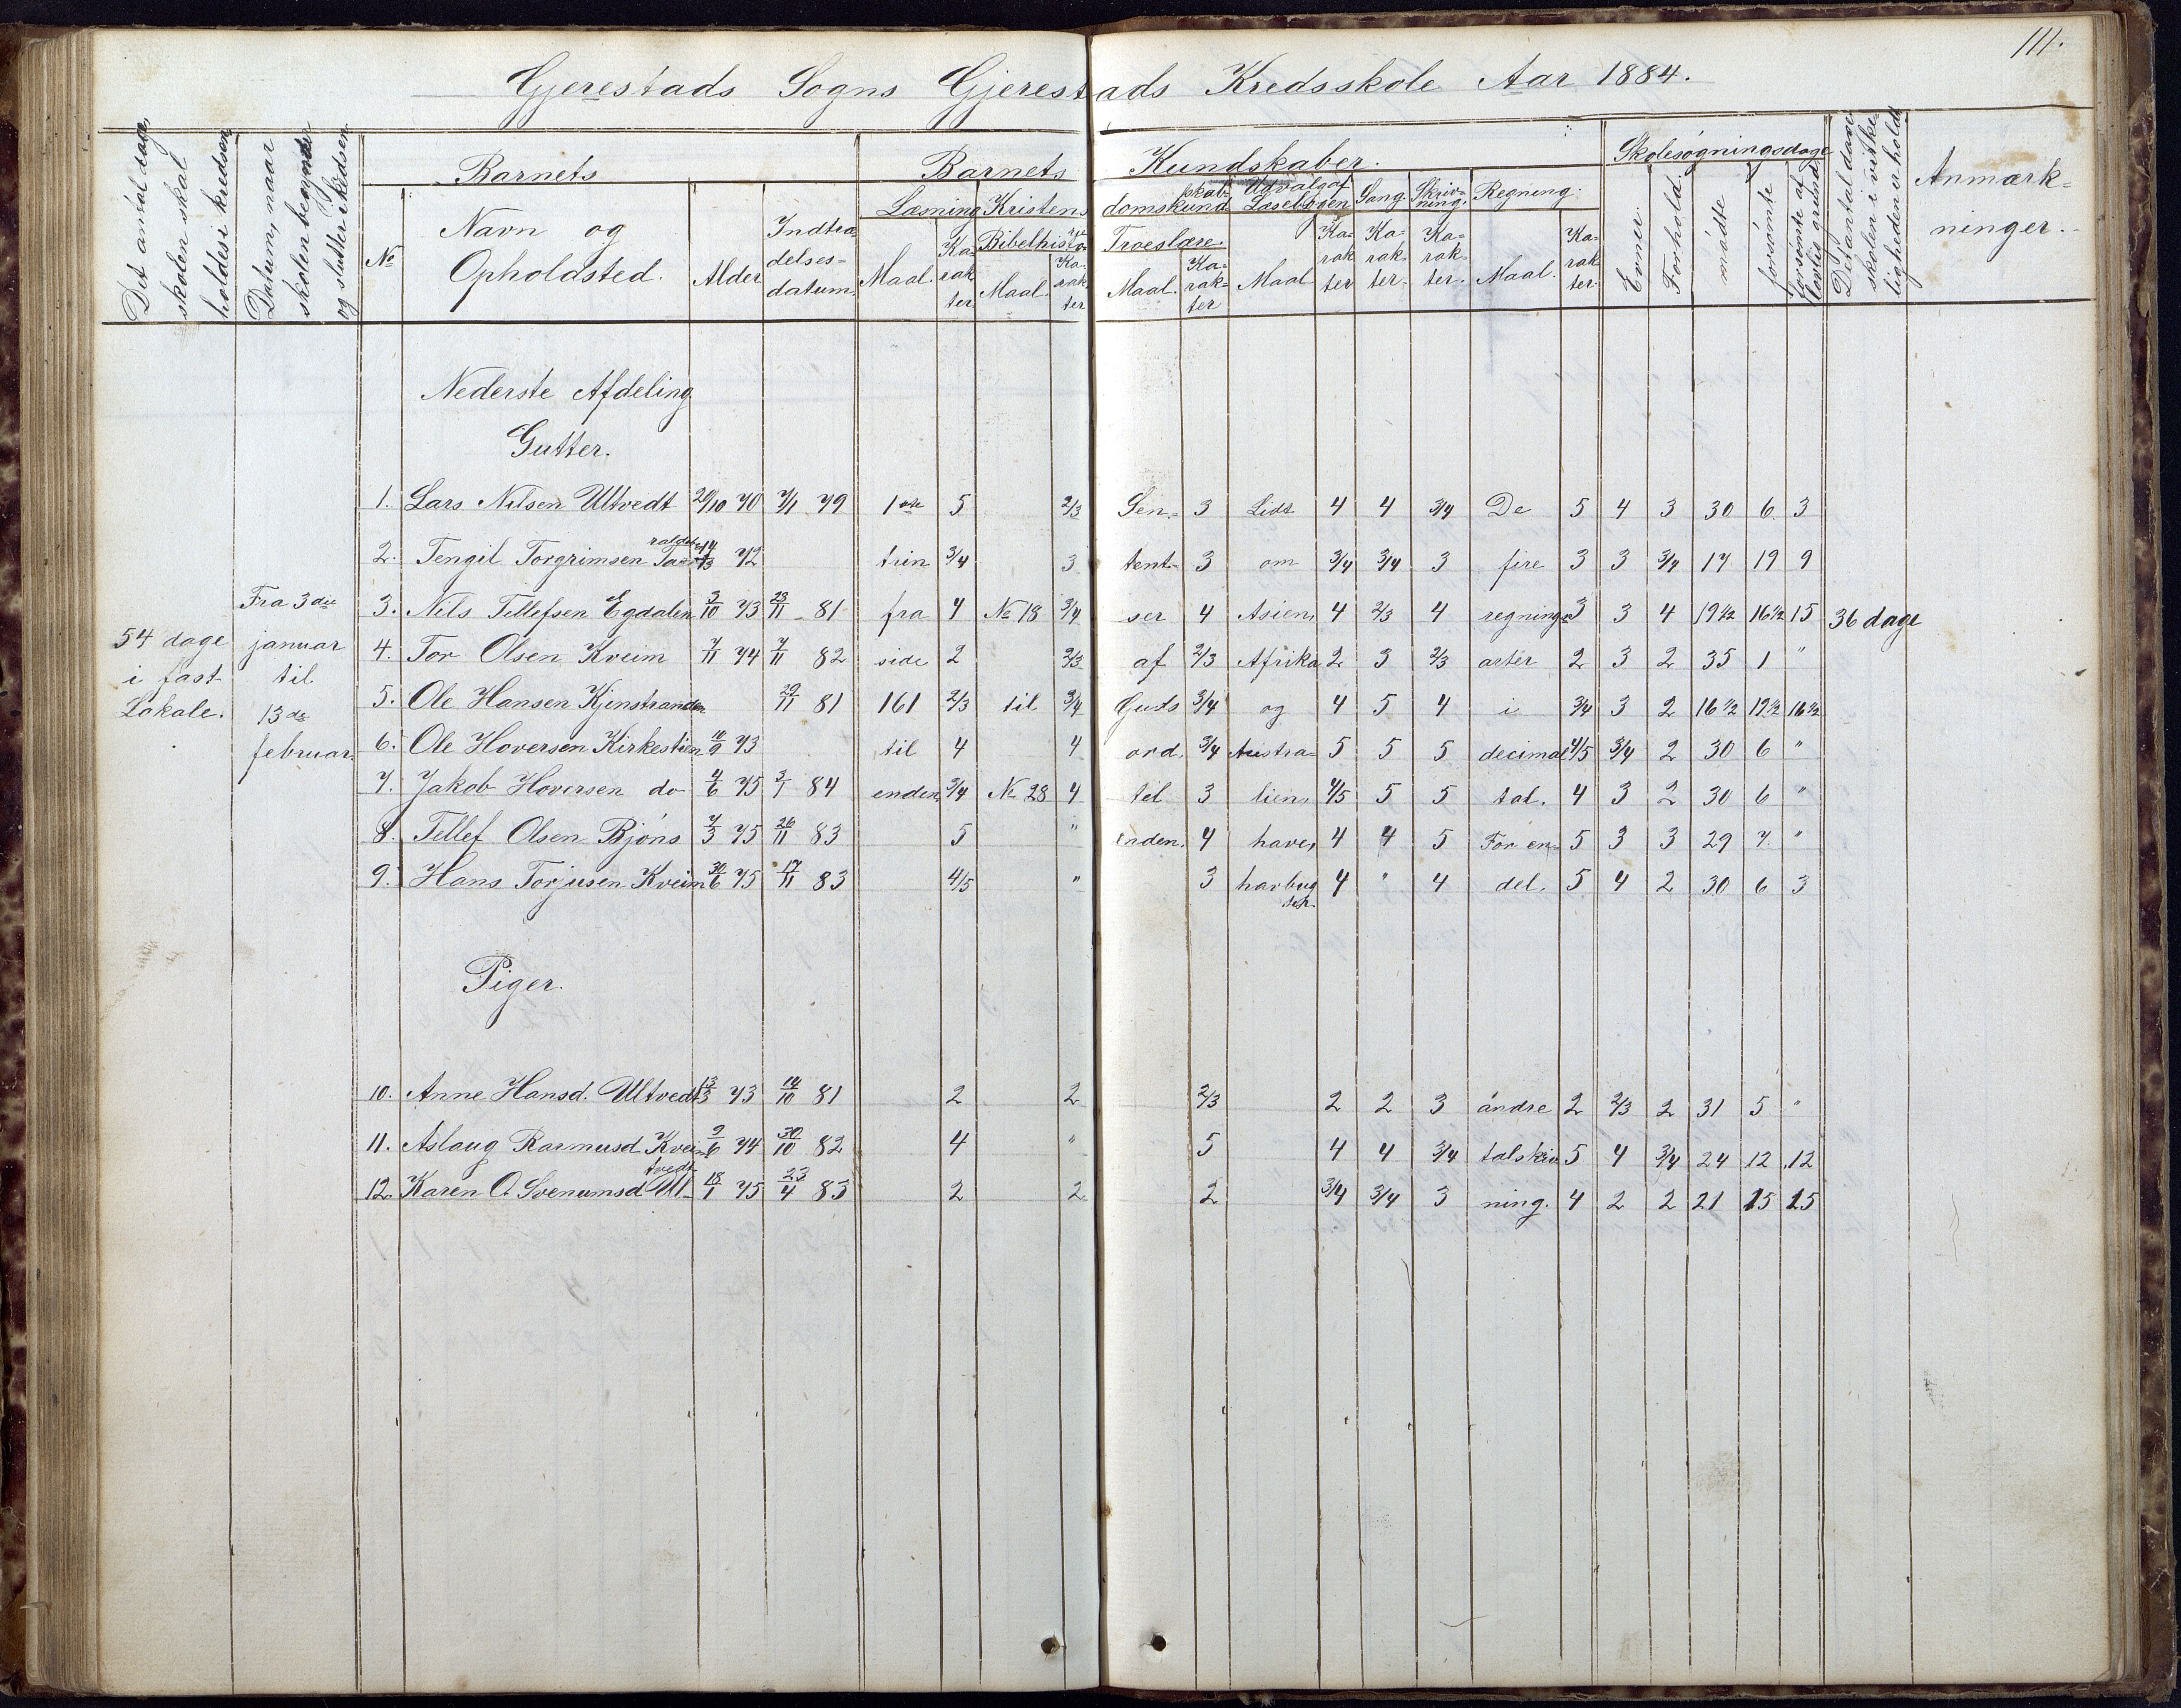 111.
Gjerestads Sogns Gjerestads Kredsskole Aar 1884.
Det antal dage, skolen skal holdes i kredsen
Datum, naar skolen begynder og slutter i kredsen
Barnets
№
Navn og Opholdsted.
Alder
Indtrædelses-datum
Barnets Kundskaber.
Læsning
Maal. Karakter
Kristendomskundskab
Bibelhistorie
Maal. Karakter
Troeslære
Maal. Karakter
Udvalg af Læsebogen
Maal Karakter
Sang.
Karakter.
Skrivning.
Karakter.
Regning.
Maal. Karakter.
Evner.
Forhold.
Skolesøgningsdage
mødte
forsømte
forsømte af lovlig grund
Det antal dage skolen i virkeligheden er holdt
Anmærkninger.
Nederste Afdeling
Gutter.
1. Lars Nilsen Ultvedt 20/10 70 7/1 79 1ste 5 2/3 Sen- 3 Lidt 4 4 3/4 De 5 4 3 30 6 3
2. Tengil Torgrimsen 72 trin 3/4 3 tent- 3 om 3/4 3/4 3 fire 3 3 3/4 17 19 9
3. Nils Tellefsen Egdalen 3/10 73 23/11 81 fra 4 № 18 3/4 ser 4 Asien, 4 2/3 4 regnings 3 3 4 19 1/2 16 1/2 15
4. Tor Olsen Kveim 7/11 74 7/11 82 side 2 2/3 af 2/3 Afrika 2 3 2/3 arter 2 3 2 35 1 "
5. Ole Hansen Kjenstranden 29/11 81 161 2/3 til 3/4 Guds 3/4 og 4 5 4 i 3/4 3 2 16 1/2 19 1/2 16 1/2
6. Ole Hoversen Kirkestien 10/9 73 til 4 4 ord, 3/4 Austra- 5 5 5 decimal 4/5 3/4 2 30 6 "
7. Jakob Hoversen do 4/6 75 3/1 84 enden, 3/4 № 28 4 til 3 lien, 4/5 5 5 tal. 4 3 2 30 6 "
8. Tellef Olsen Bjöns 7/3 75 26/11 83 5 " Enden. 4 have, 4 4 5 For en 5 3 3 29 7. "
9. Hans Torjusen Kveim 30/6 75 17/11 83 4/5 " 3 havbug ter. 4 " 4 del. 5 4 2 30 6 3
Fra 3die januar til 13de februar.
54 dage i fast Lokale.
36 dage
Piger.
10. Anne Hansd. Ultvedt 13/3 73 14/10 81 2 2 2/3 2 2 3 andre 2 2/3 2 31 5 "
11. Aslaug Rasmusd Kveim 9/6 74 30/10 82 4 " 5 4 4 3/4 talskriv 5 4 3/4 24 12 12
12. Karen O. Svenumsd Ultvedt 18/1 75 23/4 83 2 2 2 3/4 3/4 3 ning. 4 2 2 21 15 15